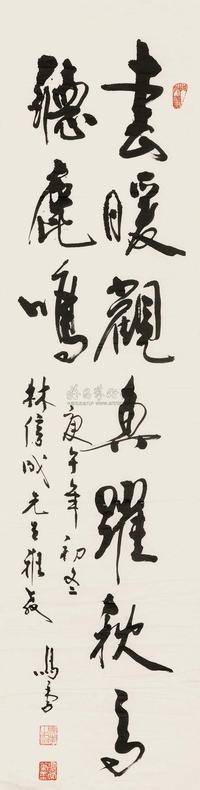 春暖觀魚躍秋高
聽鹿鳴
庚午年初冬
林成先生雅教
馬